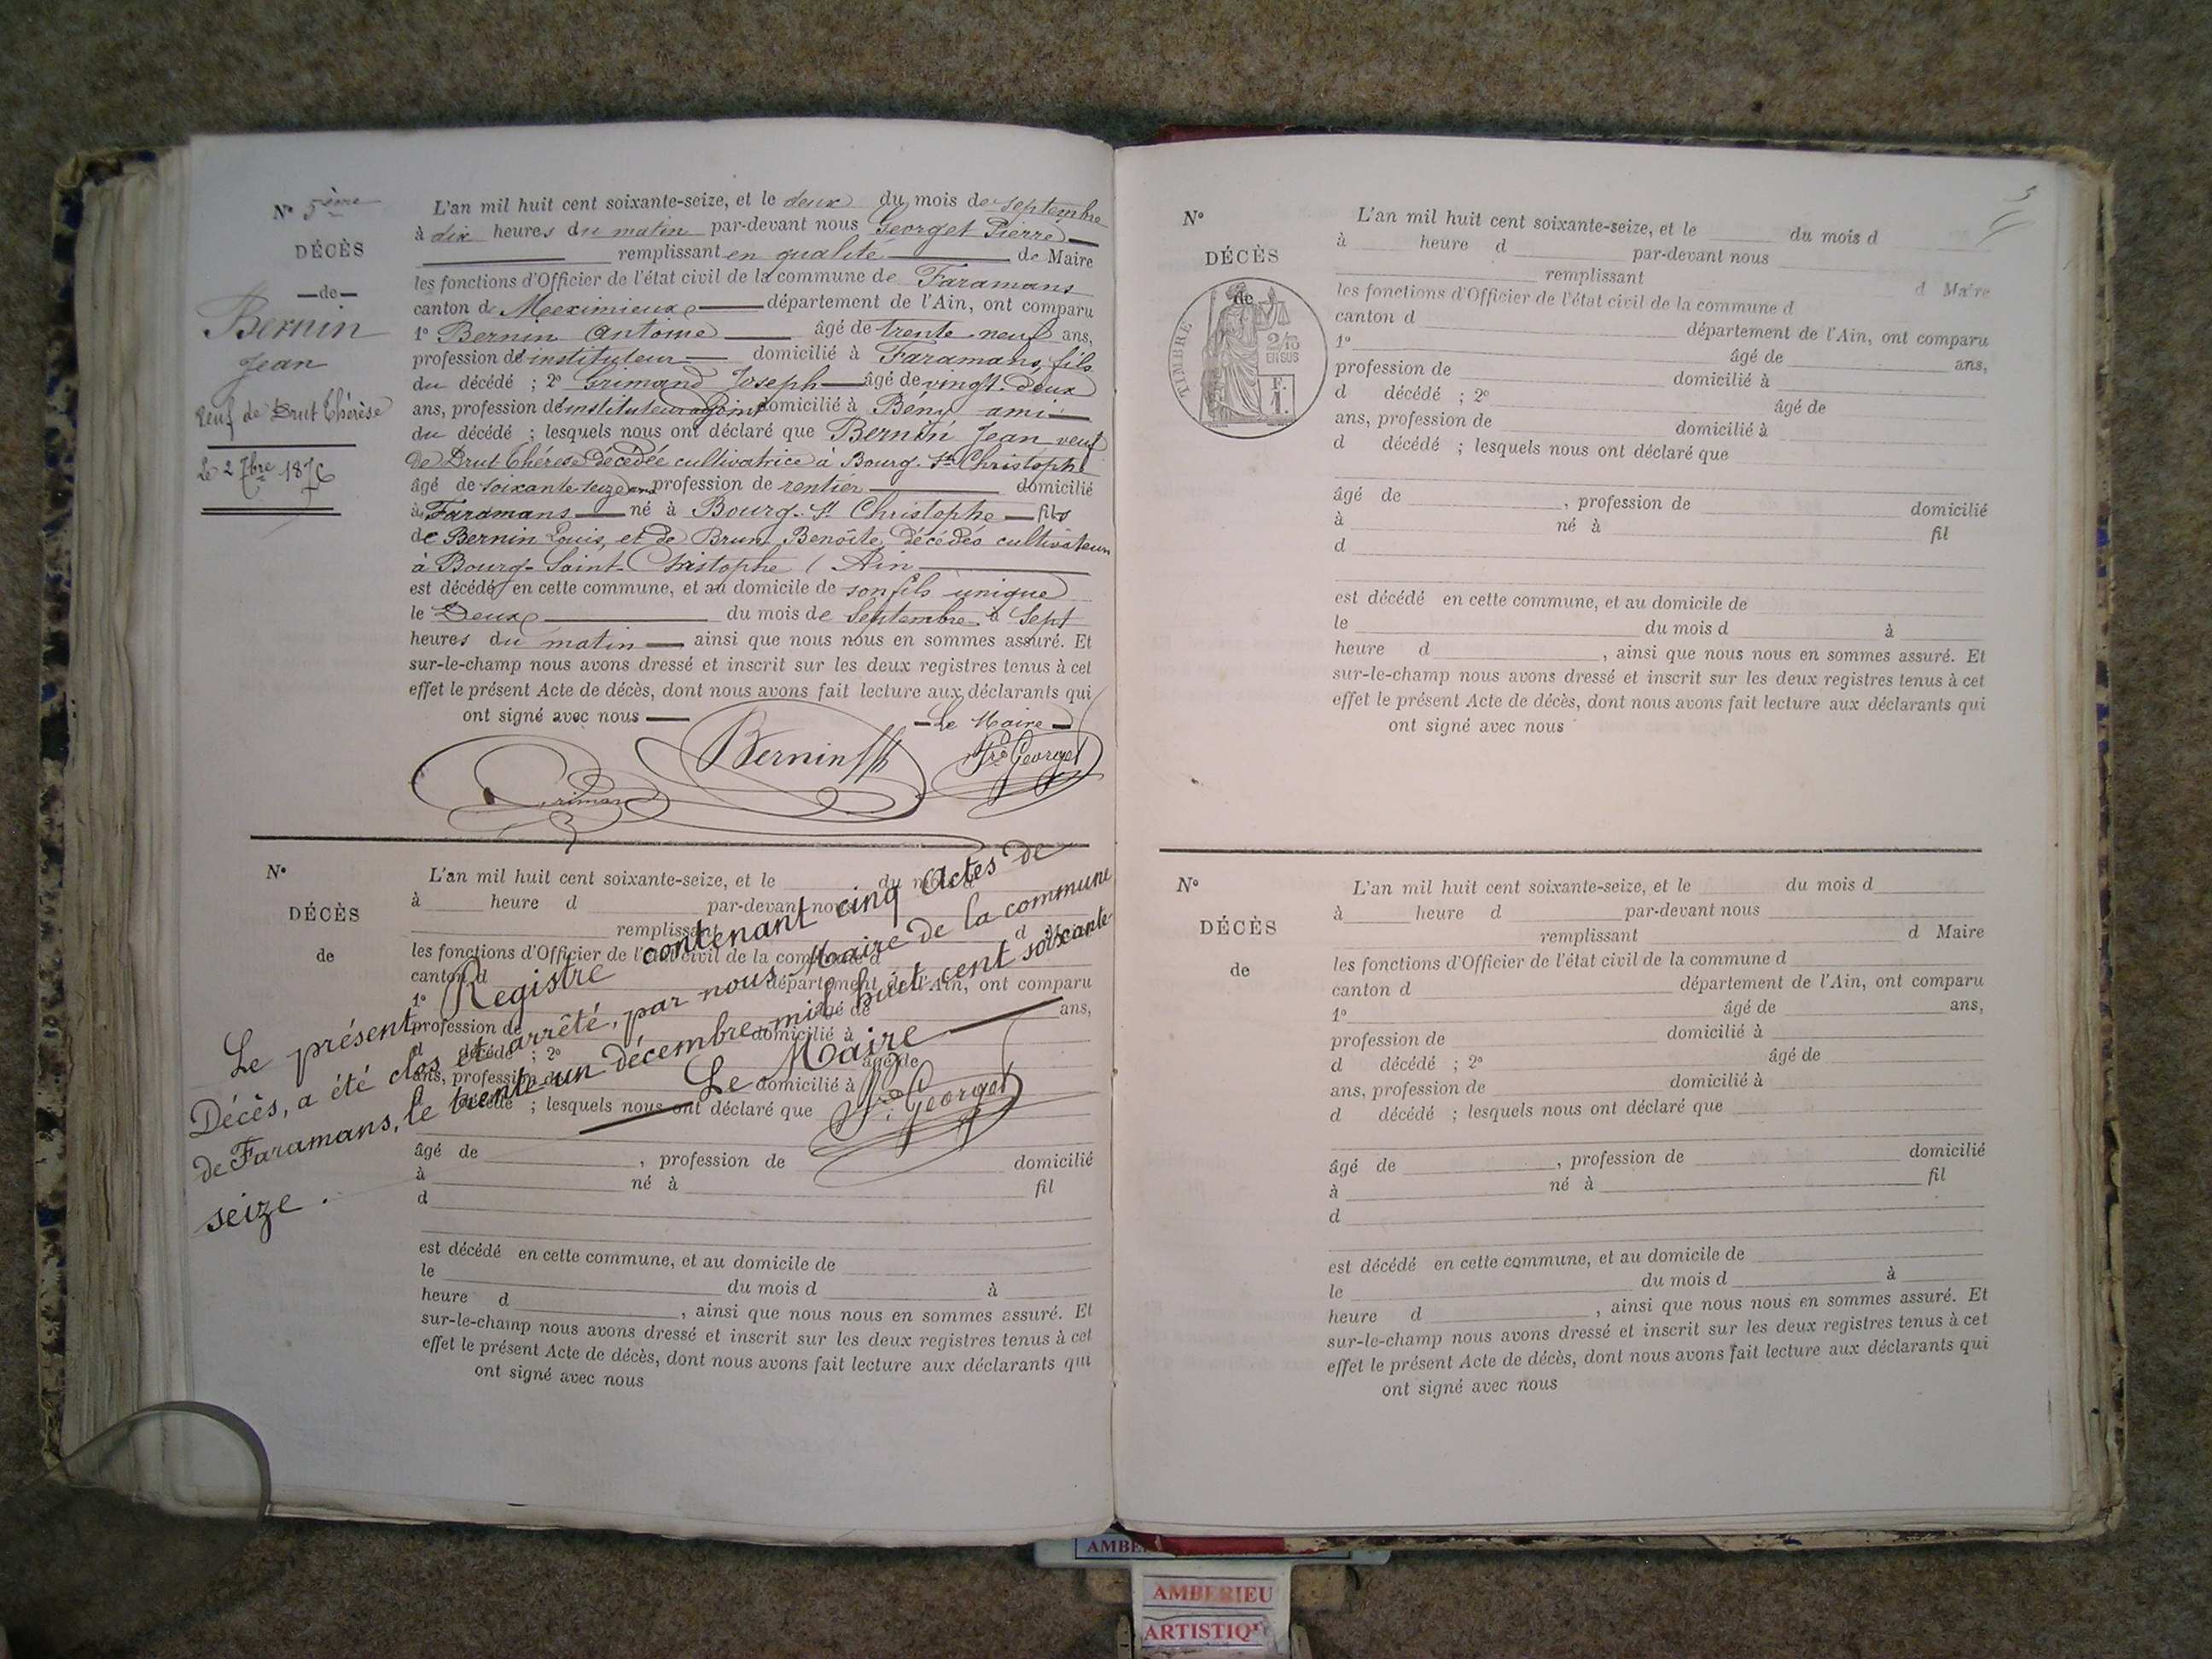 N° 5ème
DÉCÈS
—de—
Bernin
Jean
veuf de Drut Thérèse
Le 2 7bre 1876
L'an mil huit cent soixante-seize, et le deux du mois de septembre
à dix heures du matin par-devant nous Georget Pierre
remplissant en qualité de Maire
les fonctions d'Officier de l'état civil de la commune de Faramans
canton de Meximieux département de l'Ain, ont comparu
1° Bernin Antoine âgé de trente neuf ans,
profession d'instituteur domicilié à Faramans, fils
du décédé ; 2° Grimand Joseph âgé de vingt-deux
ans, profession d'instituteur adjoint domicilié à Bény ami
du décédé ; lesquels nous ont déclaré que Bernin Jean veuf
de Drut Thérèse décédée cultivatrice à Bourg-St Christophe
âgé de soixante seize ans profession de rentier domicilié
à Faramans né à Bourg-St Christophe fils
de Bernin Louis, et de Brun Benoîte, décédés cultivateurs
à Bourg-Saint-Christophe (Ain
est décédé en cette commune, et au domicile de son fils unique
le Deux du mois de Septembre à Sept
heures du matin ainsi que nous nous en sommes assuré. Et
sur-le-champ nous avons dressé et inscrit sur les deux registres tenus à cet
effet le présent Acte de décès, dont nous avons fait lecture aux déclarants qui
ont signé avec nous — Le Maire —
Bernin
Georget
Grimand
N°
DÉCÈS
de
L'an mil huit cent soixante-seize, et le du mois d
à heure d par-devant nous
remplissant d Maire
les fonctions d'Officier de l'état civil de la commune d
canton d département de l'Ain, ont comparu
1° âgé de ans,
profession de domicilié à
d décédé ; 2° âgé de
ans, profession de domicilié à
d décédé ; lesquels nous ont déclaré que
âgé de , profession de domicilié
à né à fil
d
est décédé en cette commune, et au domicile de
le du mois d à
heure d , ainsi que nous nous en sommes assuré. Et
sur-le-champ nous avons dressé et inscrit sur les deux registres tenus à cet
effet le présent Acte de décès, dont nous avons fait lecture aux déclarants qui
ont signé avec nous
Le présent Registre contenant cinq Actes de
Décès, a été clos et arrêté, par nous Maire de la commune
de Faramans, le trente-un décembre mil huit cent soixante-
seize.
Le Maire
Georget
5
N°
DÉCÈS
de
TIMBRE
2/10
EN SUS
L'an mil huit cent soixante-seize, et le du mois d
à heure d par-devant nous
remplissant d Maire
les fonctions d'Officier de l'état civil de la commune d
canton d département de l'Ain, ont comparu
1° âgé de ans,
profession de domicilié à
d décédé ; 2° âgé de
ans, profession de domicilié à
d décédé ; lesquels nous ont déclaré que
âgé de , profession de domicilié
à né à fil
d
est décédé en cette commune, et au domicile de
le du mois d à
heure d , ainsi que nous nous en sommes assuré. Et
sur-le-champ nous avons dressé et inscrit sur les deux registres tenus à cet
effet le présent Acte de décès, dont nous avons fait lecture aux déclarants qui
ont signé avec nous
N°
DÉCÈS
de
L'an mil huit cent soixante-seize, et le du mois d
à heure d par-devant nous
remplissant d Maire
les fonctions d'Officier de l'état civil de la commune d
canton d département de l'Ain, ont comparu
1° âgé de ans,
profession de domicilié à
d décédé ; 2° âgé de
ans, profession de domicilié à
d décédé ; lesquels nous ont déclaré que
âgé de , profession de domicilié
à né à fil
d
est décédé en cette commune, et au domicile de
le du mois d à
heure d , ainsi que nous nous en sommes assuré. Et
sur-le-champ nous avons dressé et inscrit sur les deux registres tenus à cet
effet le présent Acte de décès, dont nous avons fait lecture aux déclarants qui
ont signé avec nous
AMBERIEU
ARTISTIQ